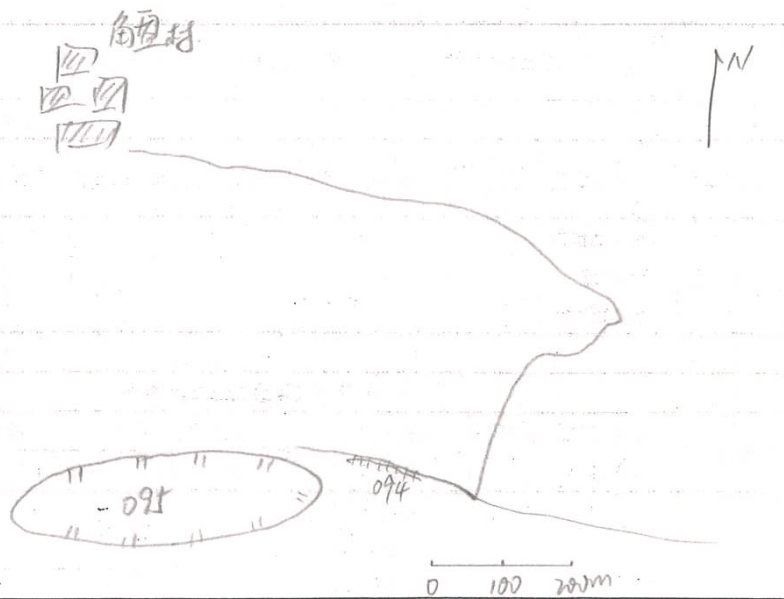 村
N
095
094
0 100 200m